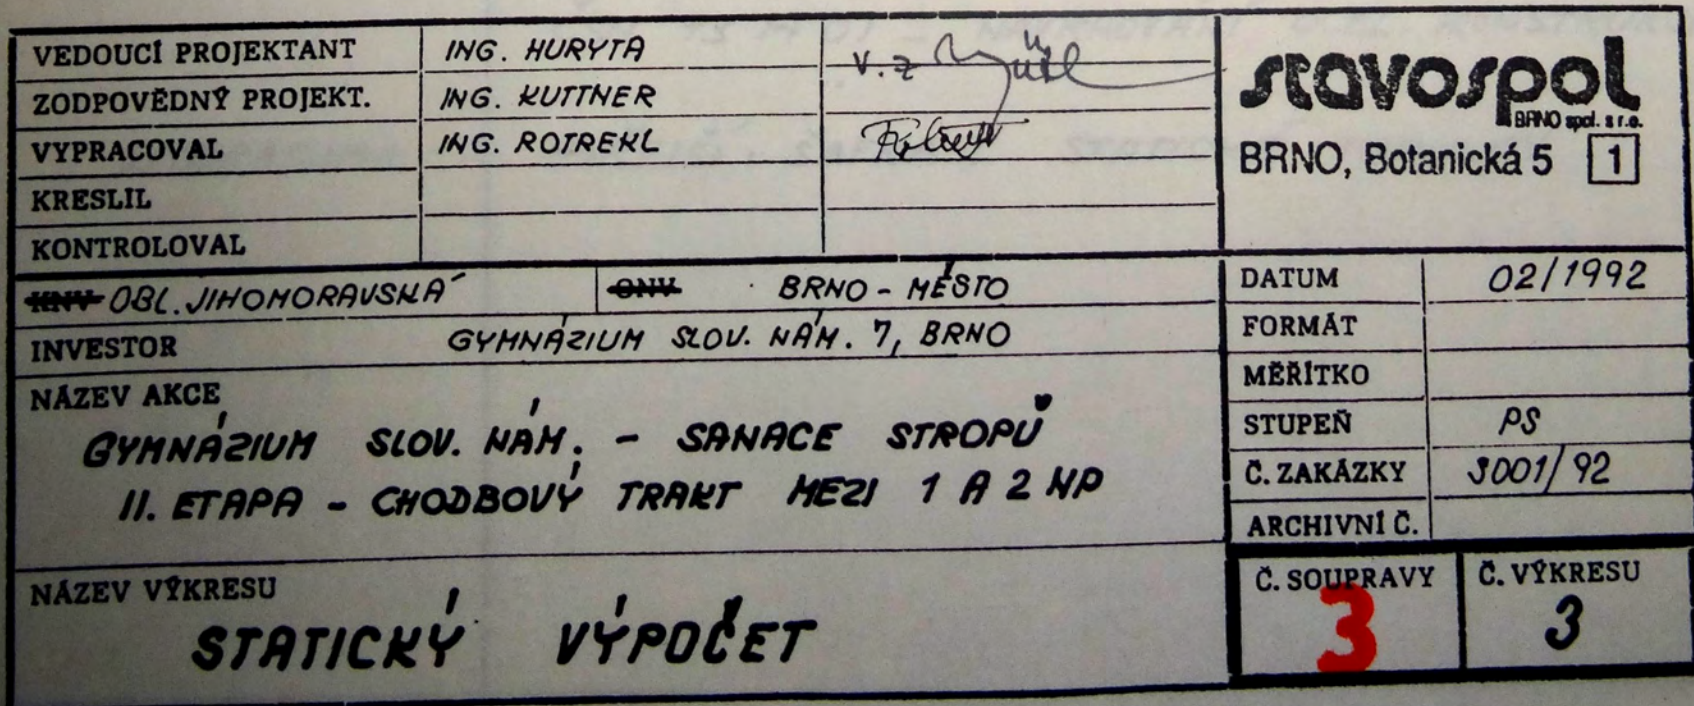 VEDOUCÍ PROJEKTANT ING. HURYTA V. Z
ZODPOVĚDNÝ PROJEKT. ING. KUTTNER
VYPRACOVAL ING. ROTREKL
KRESLIL
KONTROLOVAL
stavospol
BRNO spol. s r.o.
BRNO, Botanická 5 1
KNV OBL. JIHOMORAVSKÁ ONV BRNO - MĚSTO
INVESTOR GYMNÁZIUM SLOV. NÁM. 7, BRNO
NÁZEV AKCE
GYMNÁZIUM SLOV. NÁM. - SANACE STROPŮ
II. ETAPA - CHODBOVÝ TRAKT MEZI 1 A 2 NP
NÁZEV VÝKRESU
STATICKÝ VÝPOČET
DATUM 02/1992
FORMÁT
MĚŘÍTKO
STUPEŇ PS
Č. ZAKÁZKY 3001/92
ARCHIVNÍ Č.
Č. SOUPRAVY Č. VÝKRESU
3 3